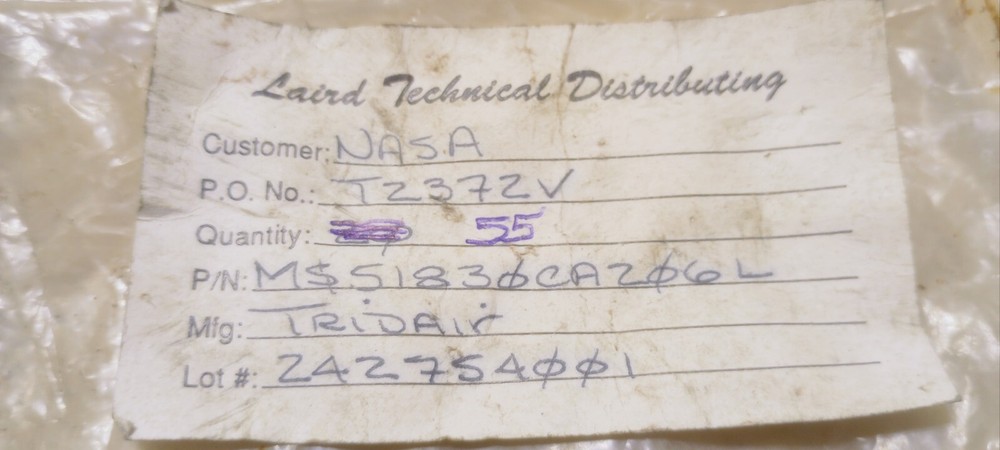 Laird Technical Distributing
Customer: NASA
P.O. No.: T2372V
Quantity: 55
P/N: MS51830CA206L
Mfg: TRiDAir
Lot #: 242754001